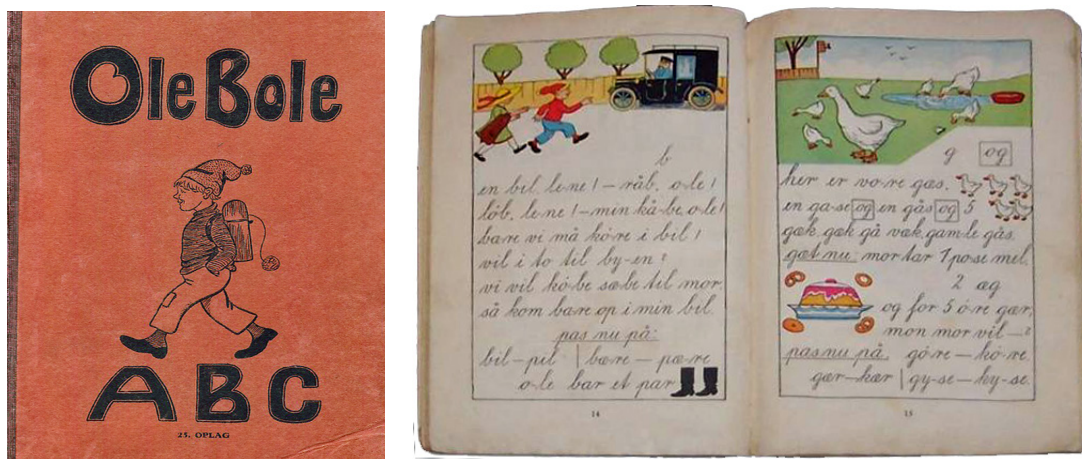 Ole Bole
ABC
25. OPLAG
b
en bil. le-ne! — råb, o-le!
löb, le-ne! — min kå-be, o-le!
bare vi må kö-re i bil!
vil i to til by-en?
vi vil kö-be sæ-be til mor.
så kom bare op i min bil.
pas nu på:
bil — pil | bæ-re — pæ-re
o-le bar et par
14
g og
her er vo-re gæs.
en ga-se og en gås og 5
gæk, gæk gå væk, gam-le gås.
gæt nu: mor tar 1 po-se mel,
2 æg
og for 5 ö-re gær,
mon mor vil —?
pas nu på gö-re — kö-re.
gær — kær | gy-se — ky-se.
15